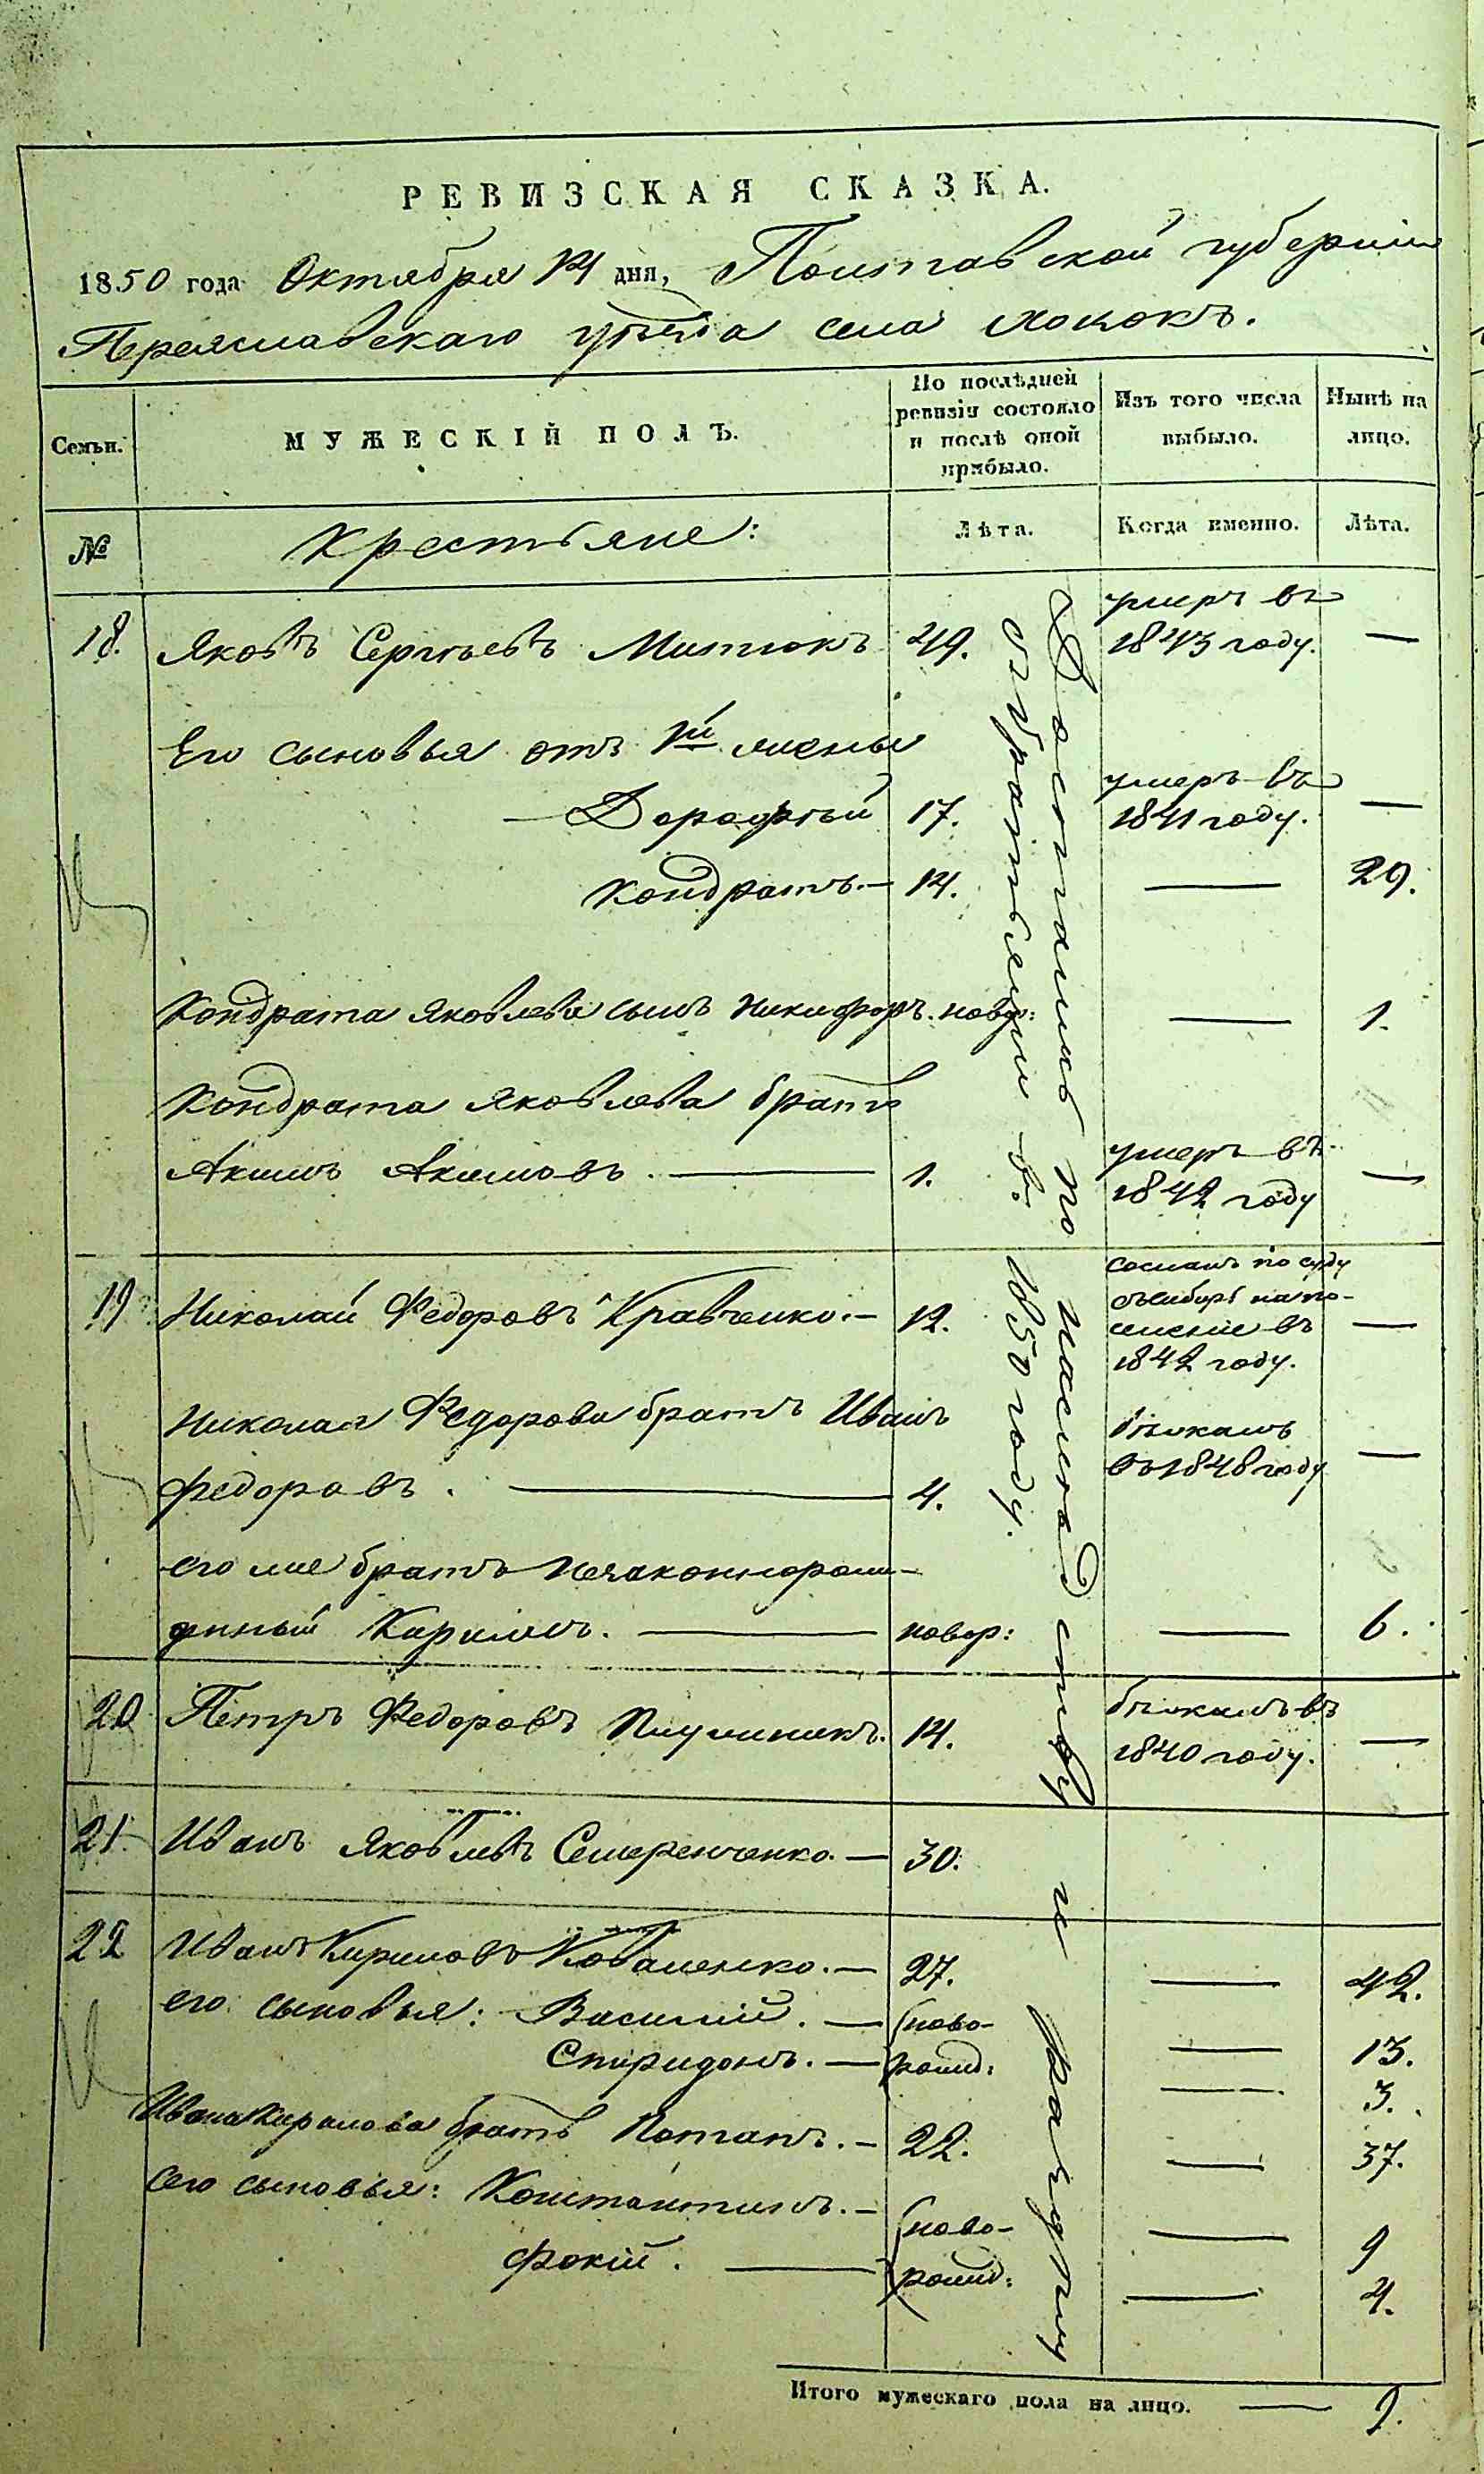 РЕВИЗСКАЯ СКАЗКА.
1850 года Октября 14 дня, Полтавской губернiи
Переяславскаго уѣзда села
Семьи.
МУЖЕСКIЙ ПОЛЪ.
По послѣдней ревизiи состояло и послѣ оной прибыло.
Изъ того числа выбыло.
Нынѣ на лицо.
№
Крестьяне:
Лѣта.
Когда именно.
Лѣта.
18. Яковъ Сергѣевъ Митюкъ 49. умеръ въ 1843 году. —
Его сыновья отъ 1й жены
— Дорофѣй 17. умеръ въ 1841 году. —
Кондратъ. — 14. — 29.
Кондрата Яковлева сынъ Никифоръ. новор: — 1.
Кондрата Яковлева братъ
Акимъ Акимовъ. — 1. умеръ въ 1842 году —
19 Николай Федоровъ Кравченко. — 12. сосланъ по суду въ Сибирь на поселенiе въ 1842 году. —
Николая Федорова братъ Иванъ
Федоровъ. — 4. бѣжалъ въ 1848 году —
его же брать незаконнорож-
денный Кирилъ. — новор: — 6.
20 Петръ Федоровъ 14. бѣжалъ въ 1840 году. —
21. Иванъ Яковлевъ Семеренченко. — 30.
22 Иванъ Кириловъ Коваленко. — 27. — 42.
его сыновья: Василiй. — ново- — 13.
Спиридонъ. — рожд: — 3.
Ивана Кирилова братъ Потапъ. — 22. — 37.
Его сыновья: Константинъ. — ново- — 9
Фокiй. — рожд: — 4.
Досталась по наслѣдству и раздѣлу
съ братьями въ 1850 году.
Итого мужескаго пола на лицо. — 9.